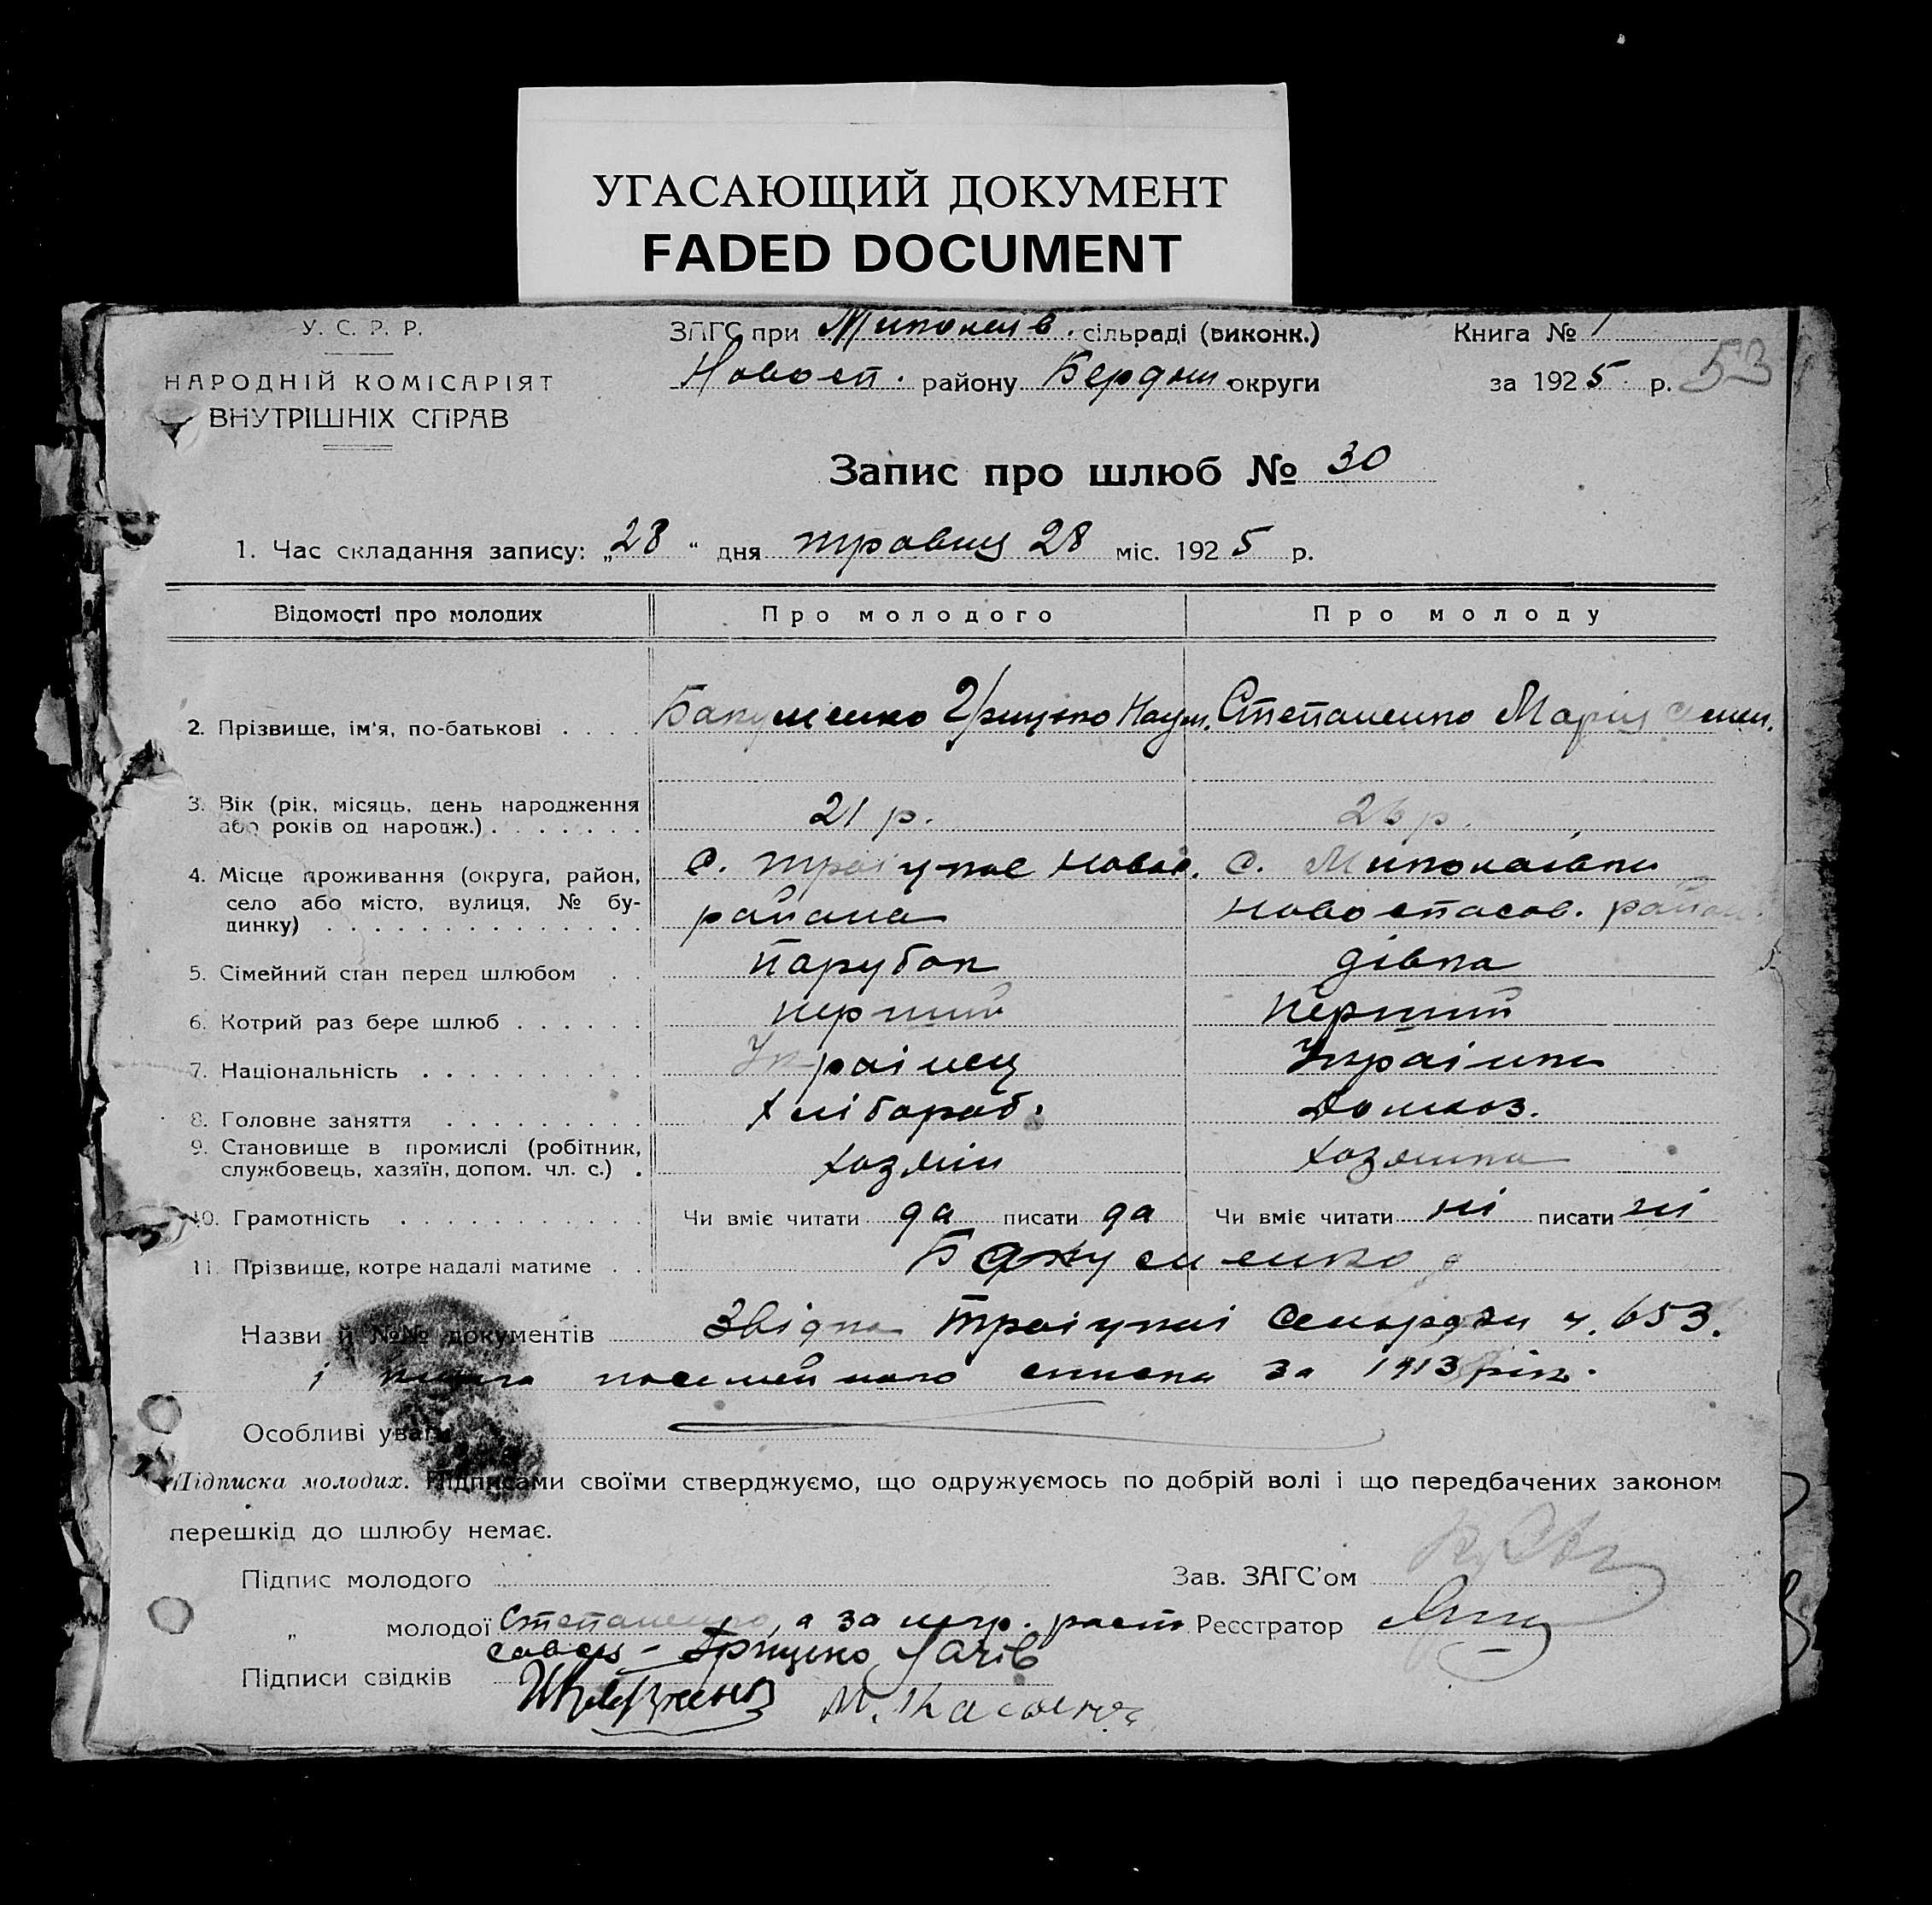 УГАСАЮЩИЙ ДОКУМЕНТ
FADED DOCUMENT
У. С. Р. Р.
НАРОДНІЙ КОМІСАРІЯТ
ВНУТРІШНІХ СПРАВ
ЗАГС при Миколаїв. сільраді (виконк.)
Новосп. району Бердян. округи
Книга № 1
за 1925 р. 53
Запис про шлюб № 30
1. Час складання запису: „28“ дня травня 28 міс. 1925 р.
Відомості про молодих Про молодого Про молоду
2. Прізвище, ім'я, по-батькові . . . . Бакуменко Грицько Наум. Степаненко Марія Семен.
3. Вік (рік, місяць, день народження
або років од народж.) . . . . . . . 21 р. 26 р.
4. Місце проживання (округа, район,
село або місто, вулиця, № бу-
динку) . . . . . . . . . . . . . .
с. Троіцкае Новос.
района
с. Миколаівки
Новоспасов. район.
5. Сімейний стан перед шлюбом . . Парубок дівка
6. Котрий раз бере шлюб . . . . . . перший перший
7. Національність . . . . . . . . . . Украінец Украінка
8. Головне заняття . . . . . . . . . Хлібороб. Домхоз.
9. Становище в промислі (робітник,
службовець, хазяїн, допом. чл. с.) . хозяін хозяика
10. Грамотність . . . . . . . . . . . Чи вміє читати да писати да Чи вміє читати ні писати ні
11. Прізвище, котре надалі матиме . . Бакуменко
Назви й №№ документів Звідка Троіцкоі Сельради ч. 653.
і посемейного списка за 1913 рік.
Особливі уваги
Підписка молодих. Підписами своїми стверджуємо, що одружуємось по добрій волі і що передбачених законом
перешкід до шлюбу немає.
Підпис молодого
Зав. ЗАГС'ом
„ молодої Степаненко, а за негр. роспи
Реєстратор
Підписи свідків
Грицько